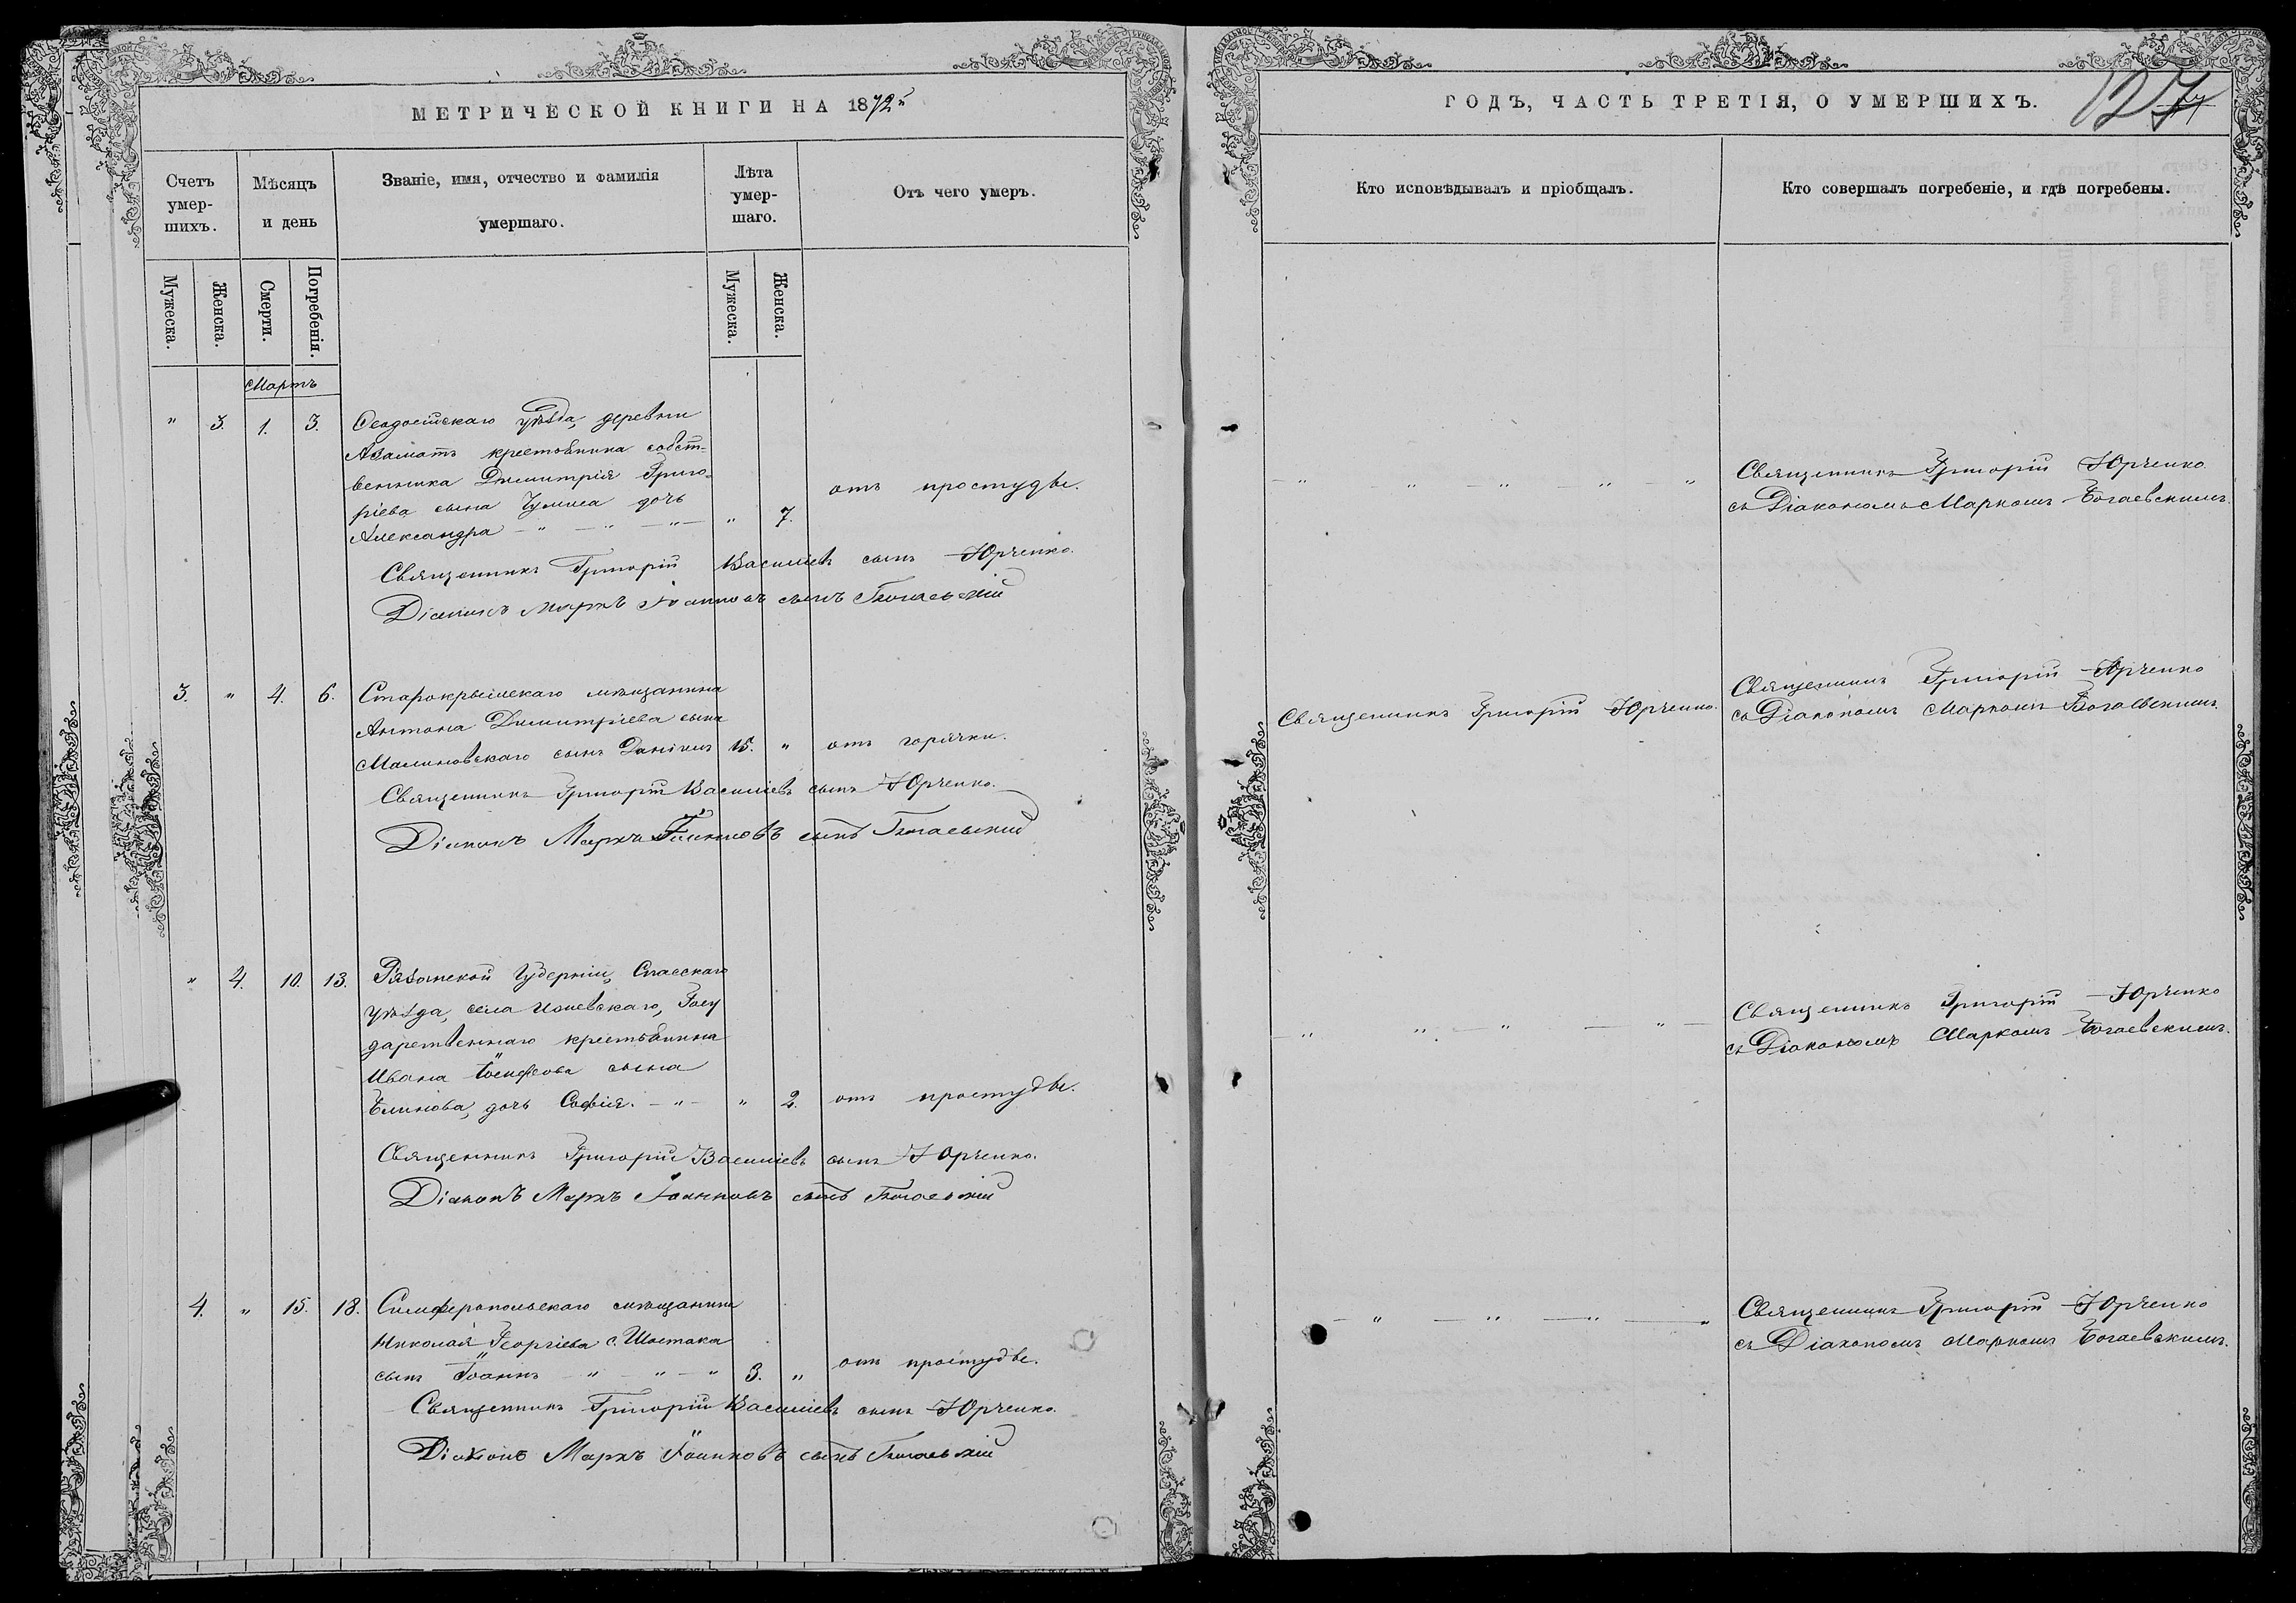 МЕТРИЧЕСКОЙ КНИГИ НА 1872й
ГОДЪ, ЧАСТЬ ТРЕТІЯ, О УМЕРШИХЪ.
127
Счетъ умер-шихъ.
Мѣсяцъ и день
Званіе, имя, отчество и фамилія умершаго.
Лѣта умер-шаго.
Отъ чего умеръ.
Кто исповѣдывалъ и пріобщалъ.
Кто совершалъ погребеніе, и гдѣ погребены.
Мужеска.
Женска.
Смерти.
Погребенія.
Мужеска.
Женска.
Мартъ
" 3. 1. 3. Ѳеодосійскаго уѣзда, деревни
Азаматъ крестьянина собст-
венника Димитрія Григо-
ріева сына дочь
Александра - " - " - " - " 7. отъ простуды.
- " " - " - " "
Священникъ Григорій Юрченко
съ Діакономъ Маркомъ Богаевскимъ.
Священникъ Григорій Василіевъ сынъ Юрченко.
Діаконъ Маркъ Іоанновъ сынъ Богаевскій
3. " 4. 6. Старокрымскаго мѣщанина
Антона Димитріева сына
Малиновскаго сынъ Даніилъ 15. " отъ горячки.
Священникъ Григорій Юрченко.
Священникъ Григорій Юрченко
съ Діакономъ Маркомъ Богаевскимъ.
Священникъ Григорій Василіевъ сынъ Юрченко.
Діаконъ Маркъ Іоанновъ сынъ Богаевскій
" 4. 10. 13. Рязанской Губерніи, Спасскаго
уѣзда, села Ижевскаго, Госу
дарственнаго крестьянина
Ивана Іосифова сына
Блинова, дочь Софія. - " - " 2. отъ простуды.
- " " - " - " -
Священникъ Григорій Юрченко
съ Діакономъ Маркомъ Богаевскимъ.
Священникъ Григорій Василіевъ сынъ Юрченко.
Діаконъ Маркъ Іоанновъ сынъ Богаевскій
4. " 15. 18. Симферопольскаго мѣщанина
Николая Георгіева с. Шостака
сынъ Іоаннъ - " - " - " 3. " отъ простуды.
- " - " - " - "
Священникъ Григорій Юрченко
съ Діакономъ Маркомъ Богаевскимъ.
Священникъ Григорій Василіевъ сынъ Юрченко.
Діаконъ Маркъ Іоанновъ сынъ Богаевскій